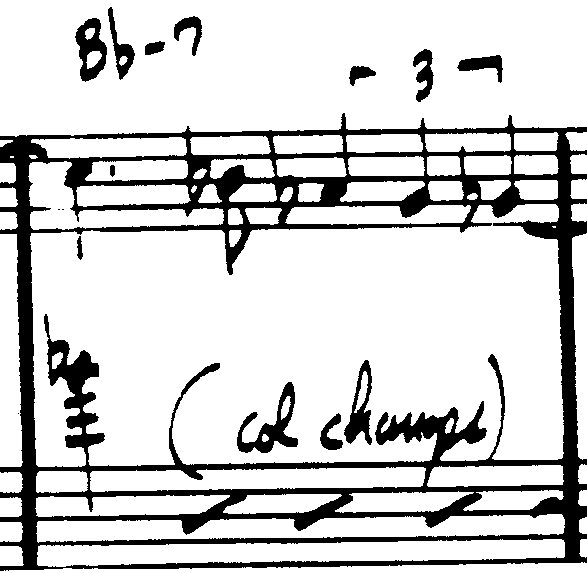 Bb-7
3
(col changes)